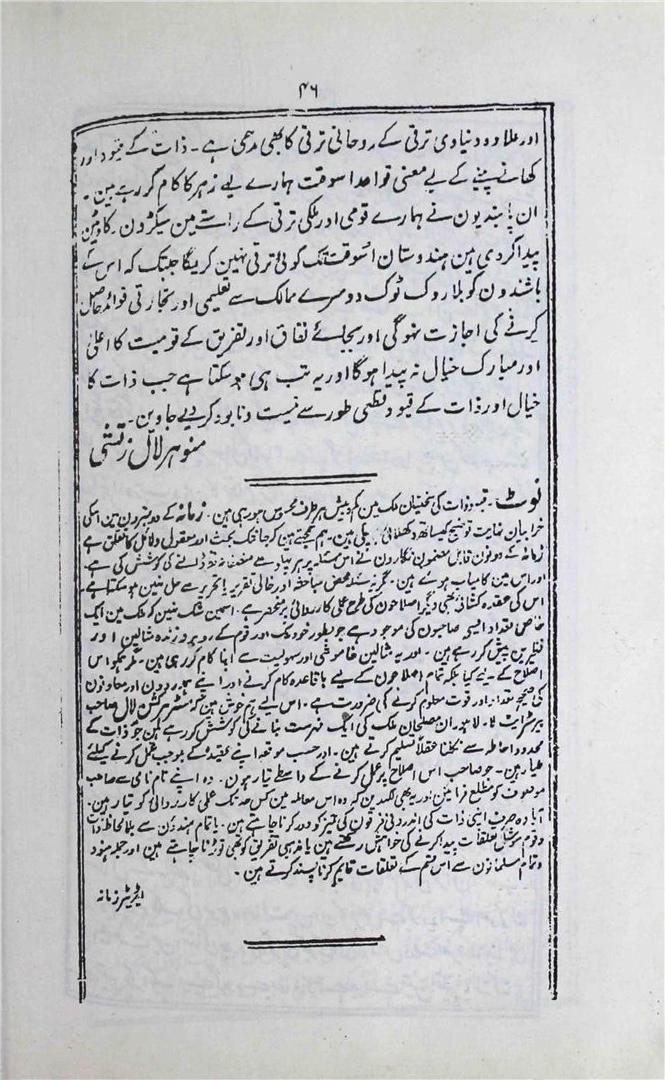 ۴۶
اور علاوہ دنیاوی ترقی کے روحانی ترقی کا بھی مدعی ہے ۔ ذات کے قیود اور
کھانے پینے کے بے معنی قواعد اسوقت ہمارے لیے زہر کا کام کر رہے ہین ۔
ان پابندیون نے ہمارے قومی اور ملکی ترقی کے راستے مین سیکڑون رکاوٹین
پیدا کر دی ہین ہندوستان اسوقت تک کوئی ترقی نہین کریگا جبتک کہ اس کے
باشندون کو بلا روک ٹوک دوسرے ممالک سے تعلیمی اور تجارتی فوائد حاصل
کرنے کی اجازت نہوگی اور بجائے نفاق اور تفریق کے قومیت کا اعلیٰ
اور مبارک خیال نہ پیدا ہوگا اور یہ تب ہی ہو سکتا ہے جب ذات کا
خیال اور ذات کے قیود قطعی طور سے نیست و نابود کر دیے جاوین ۔
منوہر لال زتشی
نوٹ ۔ قیود ذات کی سختیان ملک مین کم و بیش ہر طرف محسوس ہو رہی ہین ۔ زمانہ کے دو نمبرون مین اسکی
خرابیان نہایت توضیح کیساتھ دکھلائی جا چکی ہین ۔ ہم سمجھتے ہین کہ جہانتک بحث اور معقولی دلائل کا تعلق ہے
زمانہ کے دونون قابل مضمون نگارون نے اس مسئلہ پر ہر پہلو سے منصفانہ نظر ڈالنے کی کوشش کی ہے ۔
اور اس مین کامیاب ہوئے ہین ۔ مگر یہ مسئلہ محض مباحثہ اور خالی تقریر یا تحریر سے حل نہین ہو سکتا ہے ۔
اس کی عقدہ کشائی بھی دیگر اصلاحون کی طرح عملی کارروائی پر منحصر ہے ۔ اسمین شک نہین کہ ملک مین ایک
خاص تعداد ایسے صاحبون کی موجود ہے جو بطور خود ملک اور قوم کے روبرو زندہ مثالین اور
نظیرین پیش کر رہے ہین ۔ اور یہ مثالین خاموشی اور سہولیت سے اپنا کام کر رہی ہین ۔ مگر ہمکو اس
اصلاح کے لیے کیا بلکہ تمام اصلاحون کے لیے باقاعدہ کام کرنے اور اپنے ہمدردون اور معاونون
کی صحیح تعداد اور قوت معلوم کرنے کی ضرورت ہے ۔ اس لیے ہم خوش ہین کہ مسٹر روشن لال صاحب
بیرسٹر ایٹ لا ۔ لاہور ان مصلحان ملک کی ایک فہرست بنانے کی کوشش کر رہے ہین جو ذات کے
محدود احاطہ سے نکلنا عقلاً تسلیم کرتے ہین ۔ اور حسب موقعہ اپنے عقیدہ کے بموجب عمل کرنے کیلئے
طیار ہین ۔ جو صاحب اس اصلاح پر عمل کرنے کے واسطے تیار ہون ۔ وہ اپنے نام نامی سے صاحب
موصوف کو مطلع فرمائین اور یہ بھی لکھدین کہ وہ اس معاملہ مین کس حد تک عملی کارروائی کو تیار ہین ۔
آیا وہ صرف اپنی ذات کی اندرونی فرقون کی تمیز کو دور کرنا چاہتے ہین ۔ یا تمام ہندؤن سے بلا لحاظ ذات
و قوم سوشل تعلقات پیدا کرنے کی خواہش رکھتے ہین یا مذہبی تفریق کو بھی توڑنا چاہتے ہین اور جملہ ہنود
و تمام مسلمانون سے اس قسم کے تعلقات قایم کرنا پسند کرتے ہین ۔
ایڈیٹر زمانہ